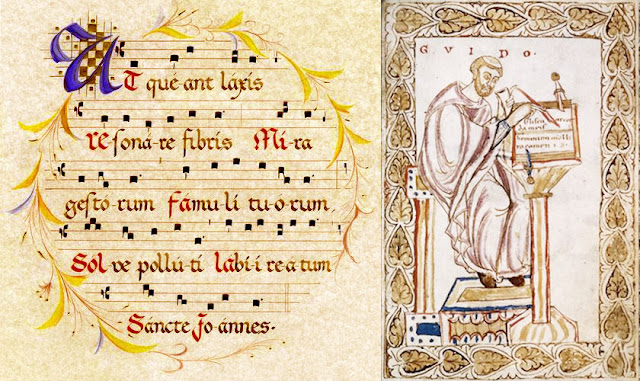 UT qué ant láxis
re-soná-re fibris Mi-ra
gesto-rum Fámu-li tu-o-rum,
Sol-ve pollú-ti lábi-i re-a tum
Sáncte Jo-ánnes.
GVIDO.